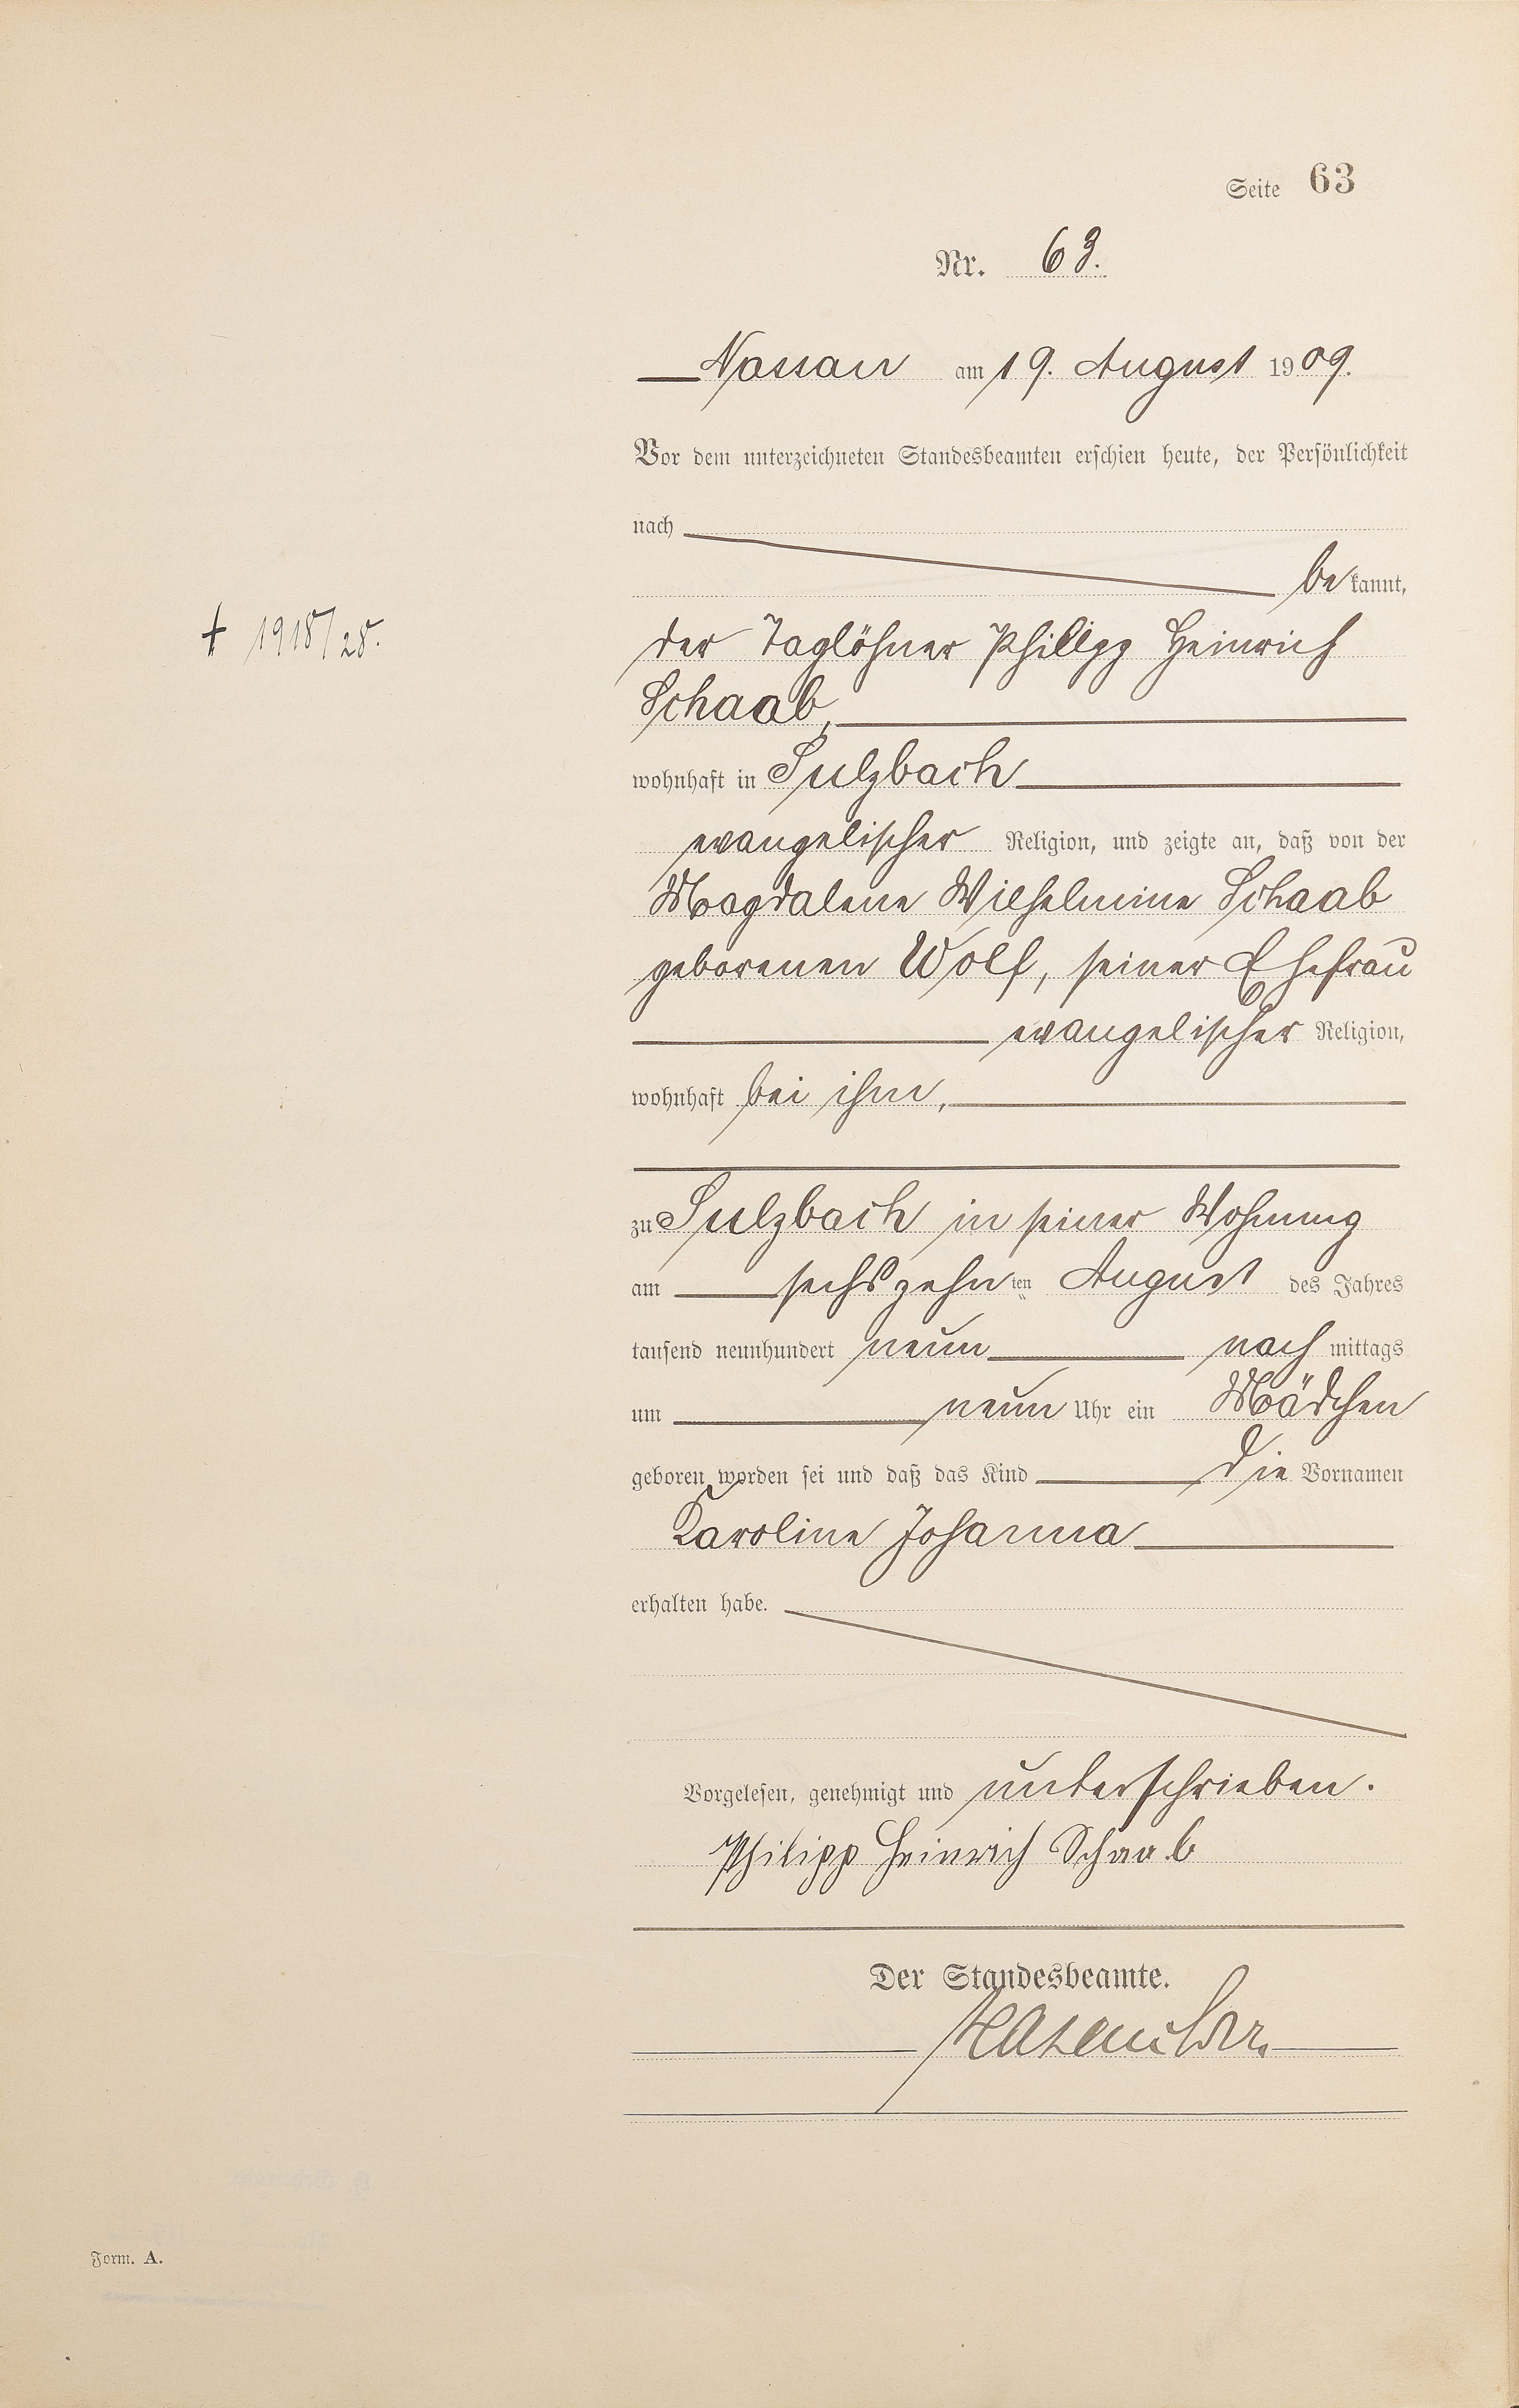 Seite 63
Nr. 63.
Nassau am 19. August 1909.
Vor dem unterzeichneten Standesbeamten erschien heute, der Persönlichkeit
nach
be kannt,
† 1918/28.
der Taglöhner Philipp Heinrich
Schaab,
wohnhaft in Sulzbach
evangelischer Religion, und zeigte an, daß von der
Magdalene Wilhelmine Schaab
geborenen Wolf, seiner Ehefrau
evangelischer Religion,
wohnhaft bei ihm,
zu Sulzbach in seiner Wohnung
am sechszehn ten August des Jahres
tausend neunhundert neun nach mittags
um neun Uhr ein Mädchen
geboren worden sei und daß das Kind die Vornamen
Karoline Johanna
erhalten habe.
Vorgelesen, genehmigt und unterschrieben.
Philipp Heinrich Schaab
Der Standesbeamte.
Form. A.